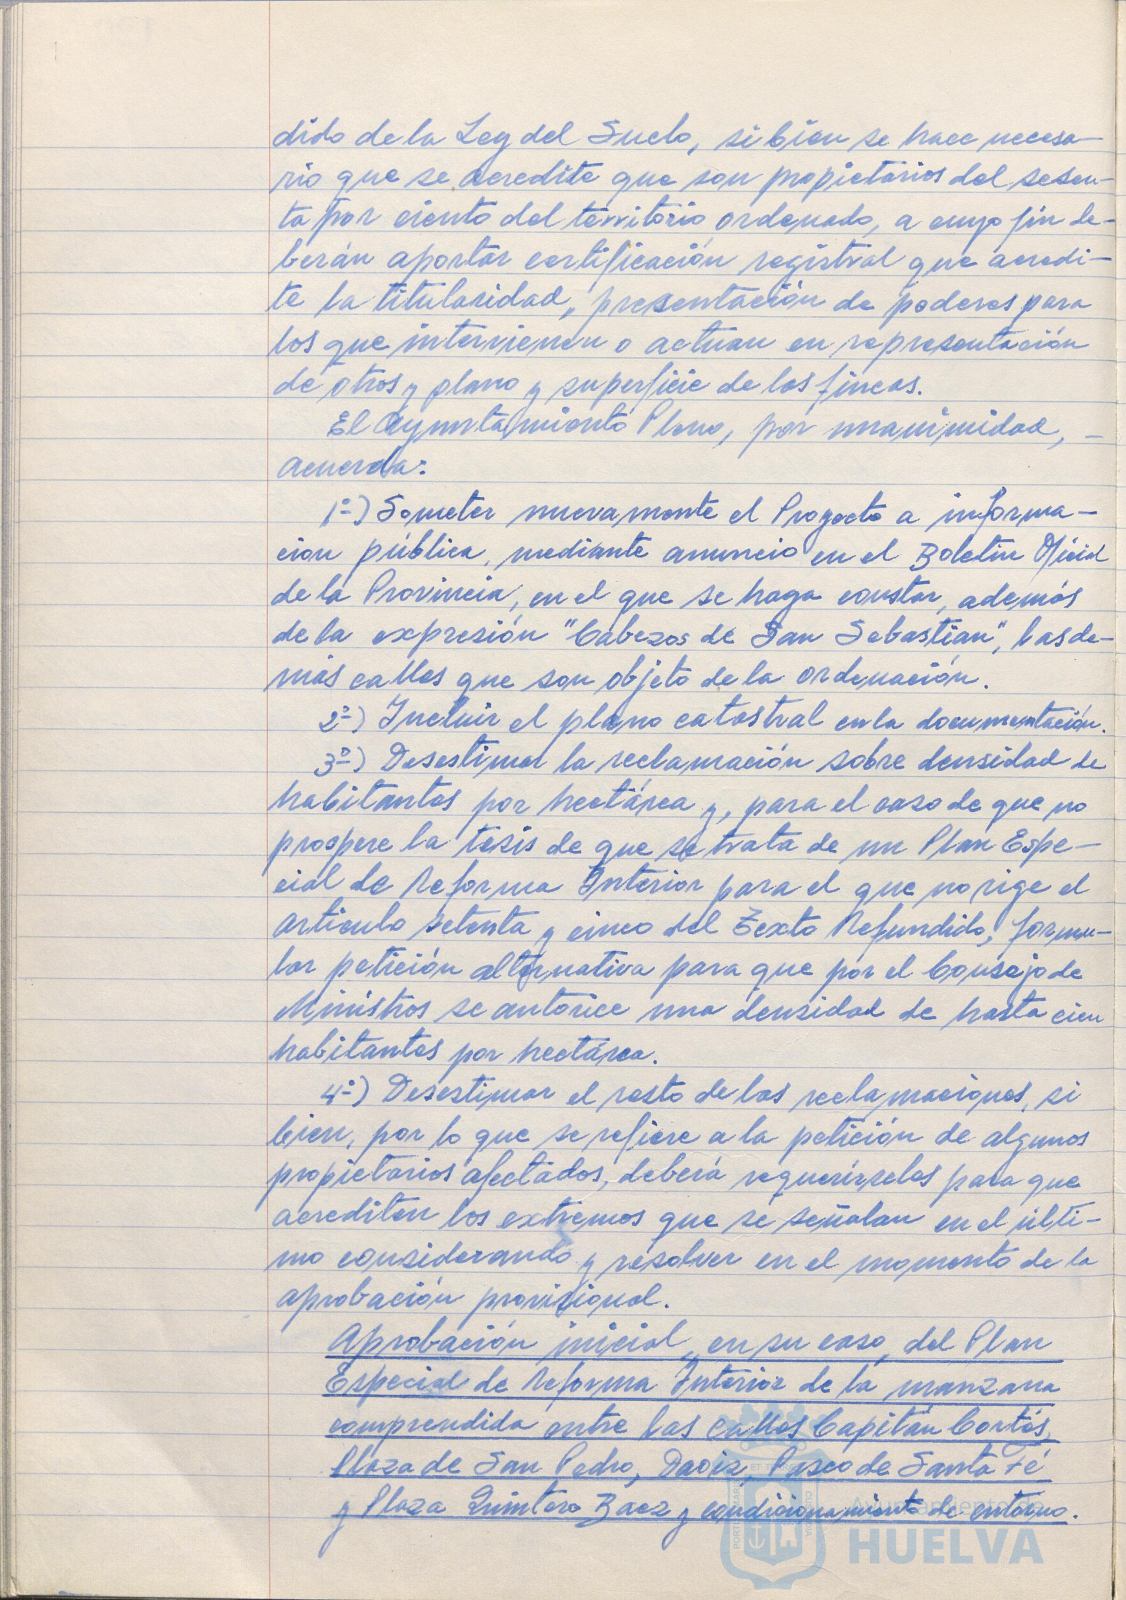 dido de la Ley del Suelo, si bien se hace necesa-
rio que se acredite que son propietarios del sesen-
ta por ciento del territorio ordenado, a cuyo fin de-
berán aportar certificación registral que acredi-
te la titularidad, presentación de poderes para
los que intervienen o actuan en representación
de otros y plano y superficie de las fincas.
El Ayuntamiento Pleno, por unanimidad, -
acuerda:
1º-) Someter nuevamente el Proyecto a informa-
cion pública, mediante anuncio en el Boletin Oficial
de la Provincia, en el que se haga constar, además
de la expresión "Cabezos de San Sebastian", las de-
más calles que son objeto de la ordenación.
2º-) Incluir el plano catastral en la documentación.
3º-) Desestimar la reclamación sobre densidad de
habitantes por hectárea y, para el caso de que no
prospere la tesis de que se trata de un Plan Espe-
cial de Reforma Interior para el que no rige el
articulo setenta y cinco del Texto Refundido, formu-
lar petición alternativa para que por el Consejo de
Ministros se autorice una densidad de hasta cien
habitantes por hectárea.
4º-) Desestimar el resto de las reclamaciones, si
bien, por lo que se refiere a la petición de algunos
propietarios afectados, deberá requerírselas para que
acrediten los extremos que se señalan en el últi-
mo considerando y resolver en el momento de la
aprobación provisional.
Aprobación inicial, en su caso, del Plan
Especial de Reforma Interior de la manzana
comprendida entre las calles Capitán Cortés,
Plaza de San Pedro, Daoiz, Paseo de Santa Fé
y Plaza Quintero Baez y condicionamiento de entorno.
Ayuntamiento de
HUELVA